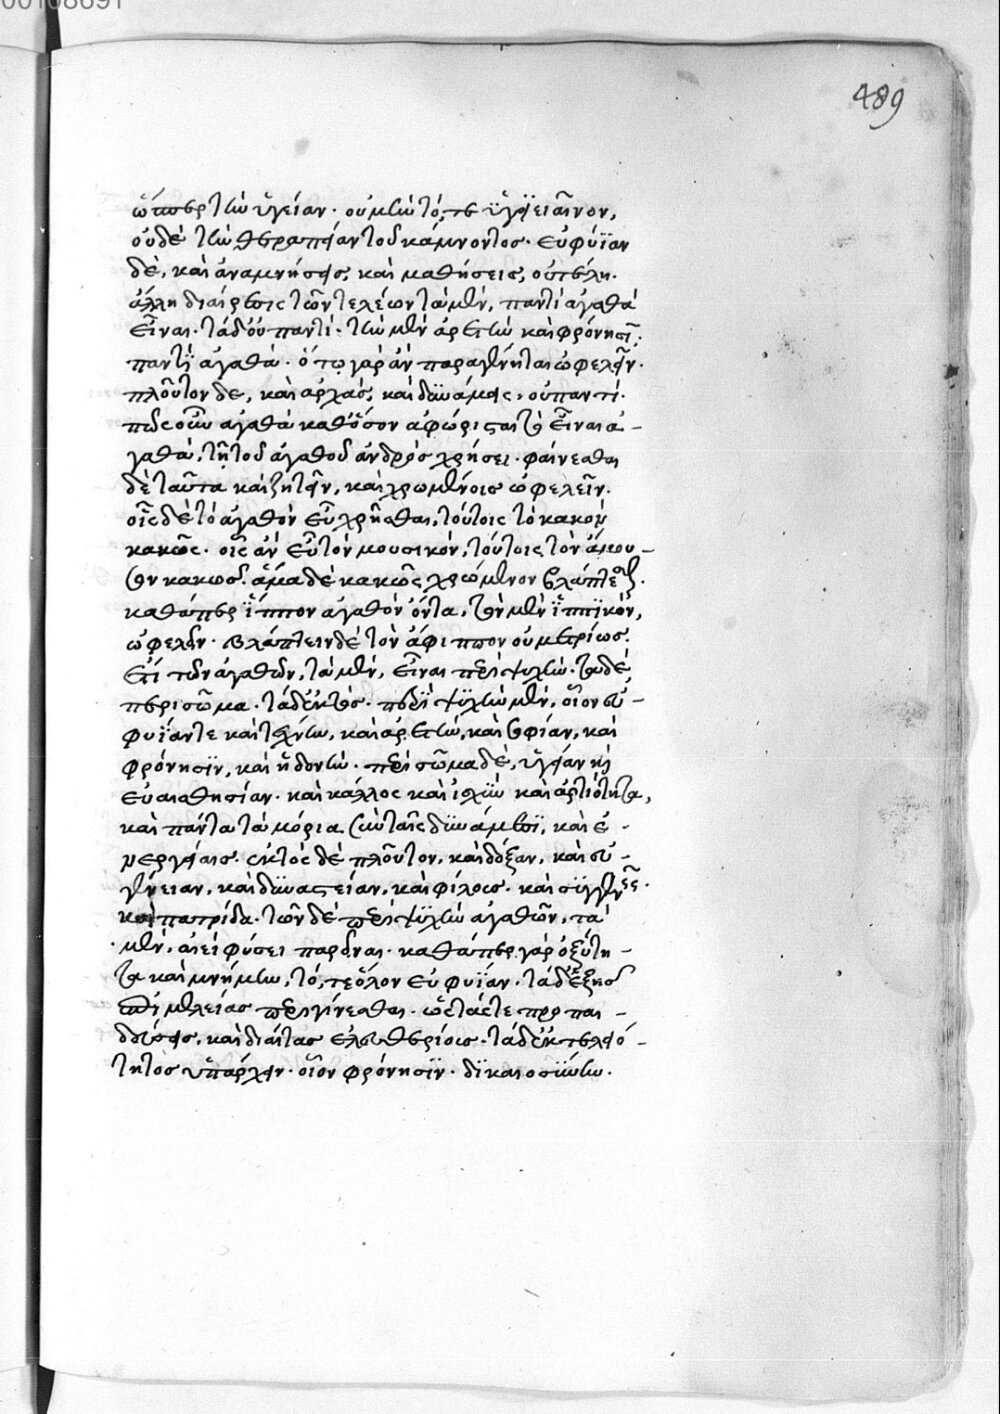 489
ὥσπερ τὴν ὑγείαν. οὐ μὴν τό, τε ὑγιεῖαινον,
οὐδὲ τὴν θεραπείαν τοῦ κάμνοντος. εὐφυΐαν
δὲ, καὶ ἀναμνήσεις, καὶ μαθήσεις, οὐ τέλη.
ἄλλη διαίρεσις τῶν τελείων τὰ μὲν, παντὶ ἀγαθὰ
εἶναι. τὰ δ' οὐ παντί. τὴν μὲν ἀρετὴν καὶ φρόνησιν,
παντὶ ἀγαθά. ὅτῳ γὰρ ἂν παραγένηται ὠφελεῖν.
πλοῦτον δὲ, καὶ ἀρχάς, καὶ δυνάμεις, οὐ παντί.
πῶς οὖν ἀγαθὰ καθόσον ἀφώρισται τὸ εἶναι ἀ-
γαθὰ, τῇ τοῦ ἀγαθοῦ ἀνδρὸς χρήσει. φαίνεσθαι
δὲ ταῦτα καὶ ζητεῖν, καὶ χρωμένοις ὠφελεῖν.
οἷς δὲ τὸ ἀγαθὸν εὖ χρῆσθαι, τούτοις τὸ κακὸν
κακῶς. οἷς ἂν εὖ τὸν μουσικὸν, τούτοις τὸν ἄμου-
σον κακῶς. ἅμα δὲ κακῶς χρώμενον βλάπτεσθαι.
καθάπερ ἵππον ἀγαθὸν ὄντα, τὸν μὲν ἱππικὸν,
ὠφελεῖν. βλάπτειν δὲ τὸν ἄφιππον οὐ μετρίως.
ἔτι τῶν ἀγαθῶν, τὰ μὲν, εἶναι περὶ ψυχήν. τὰ δὲ
περὶ σῶμα. τὰ δ' ἐκτός. περὶ ψυχὴν μὲν, οἷον εὐ-
φυΐαν τε καὶ τέχνην, καὶ ἀρετὴν, καὶ σοφίαν, καὶ
φρόνησιν, καὶ ἡδονήν. περὶ σῶμα δὲ, ὑγείαν καὶ
εὐαισθησίαν. καὶ κάλλος καὶ ἰσχὺν καὶ ἀρτιότητα,
καὶ πάντα τὰ μόρια σὺν ταῖς δυνάμεσι, καὶ ἐ-
νεργείαις. ἐκτὸς δὲ πλοῦτον, καὶ δόξαν, καὶ εὐ-
γένειαν, καὶ δυναστείαν, καὶ φίλους. καὶ συγγενεῖς.
καὶ πατρίδα. τῶν δὲ περὶ ψυχὴν ἀγαθῶν, τὰ
μὲν, ἀεὶ φύσει παρεῖναι. καθάπερ γὰρ ὀξύτη-
τα καὶ μνήμην, τό, τε ὅλον εὐφυΐαν. τὰ δ' ἐξ
ἐπιμελείας περιγίνεσθαι. ὡς τάς τε προπαι-
δεύσεις, καὶ διαίτας ἐλευθερίους. τὰ δ' ἐκ τελειό-
τητος ὑπάρχειν. οἷον φρόνησιν. δικαιοσύνην.